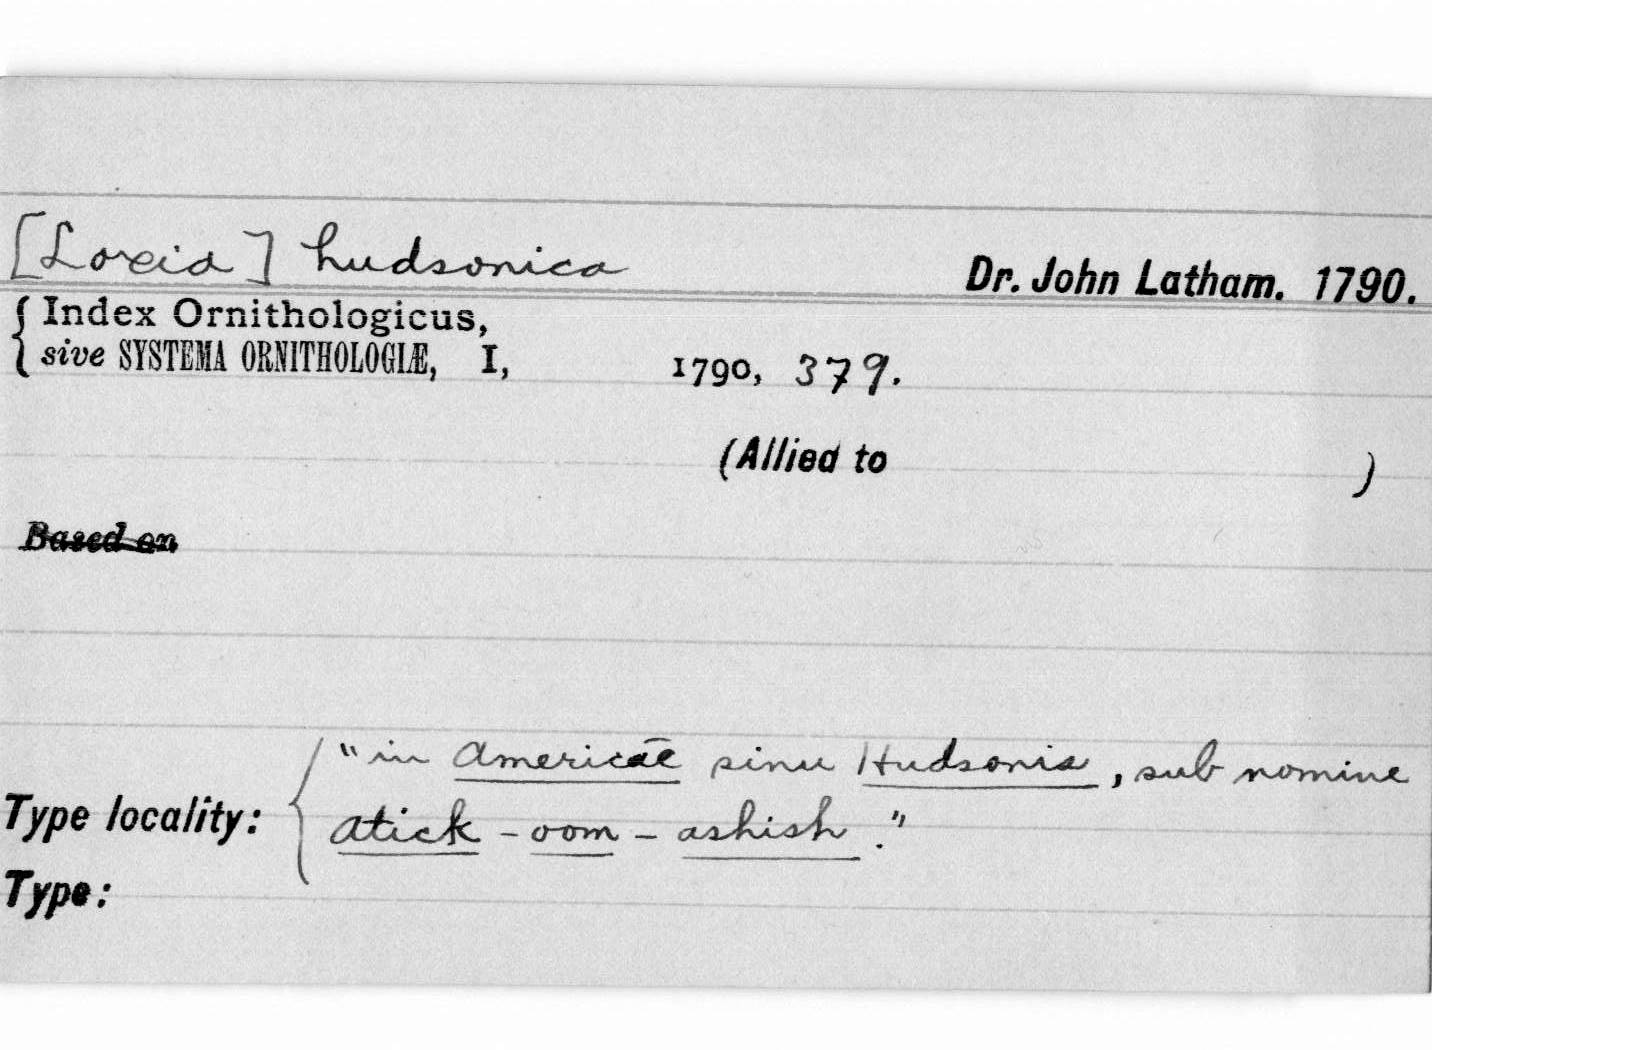 [Loxia] hudsonica
Dr. John Latham. 1790.
Index Ornithologicus,
sive SYSTEMA ORNITHOLOGIÆ, I, 1790, 379.
(Allied to )
Based on
"in Americæ sinu Hudsonis, sub nomine
Type locality: atick - oom - ashish."
Type: